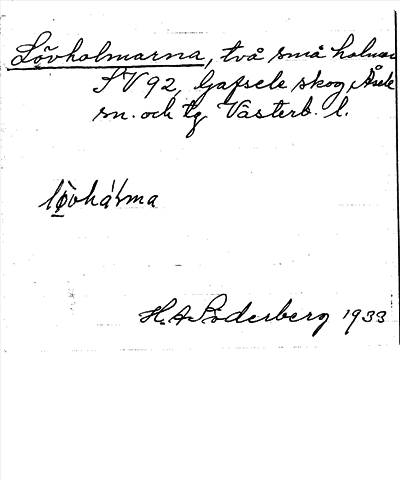 Lövholmarna, två små holmar
SV 92, Gafsele skog, Åsele
sn. och tg Västerb. l.
lø̀vhá'ɫma
H. A. Söderberg 1933